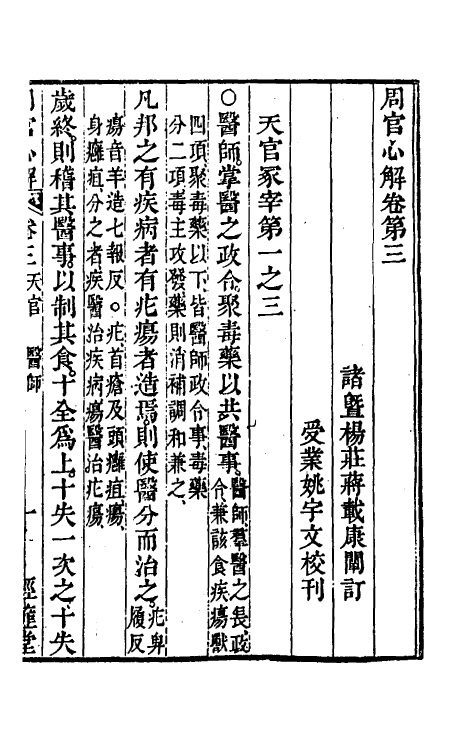 周官心解卷第三
諸暨楊莊蔣載康闡訂
受業姚宇文校刊
天官冢宰第一之三
○醫師。掌醫之政令。聚毒藥以共醫事。醫師。羣醫之長。政
令兼該食疾瘍獸
四項。聚毒藥以下。皆醫師政令事。毒藥
分二項。毒。主攻發。藥則消補調和兼之。
凡邦之有疾病者。有疕瘍者造焉。則使醫分而治之。疕卑
履反
瘍音羊造七報反。○疕。首瘡及頭癰疽。瘍。
身癰疽。分之者。疾醫治疾病。瘍醫治疕瘍。
歲終。則稽其醫事。以制其食。十全爲上。十失一次之。十失
周官心解 卷三 天官 醫師 一 經篴堂